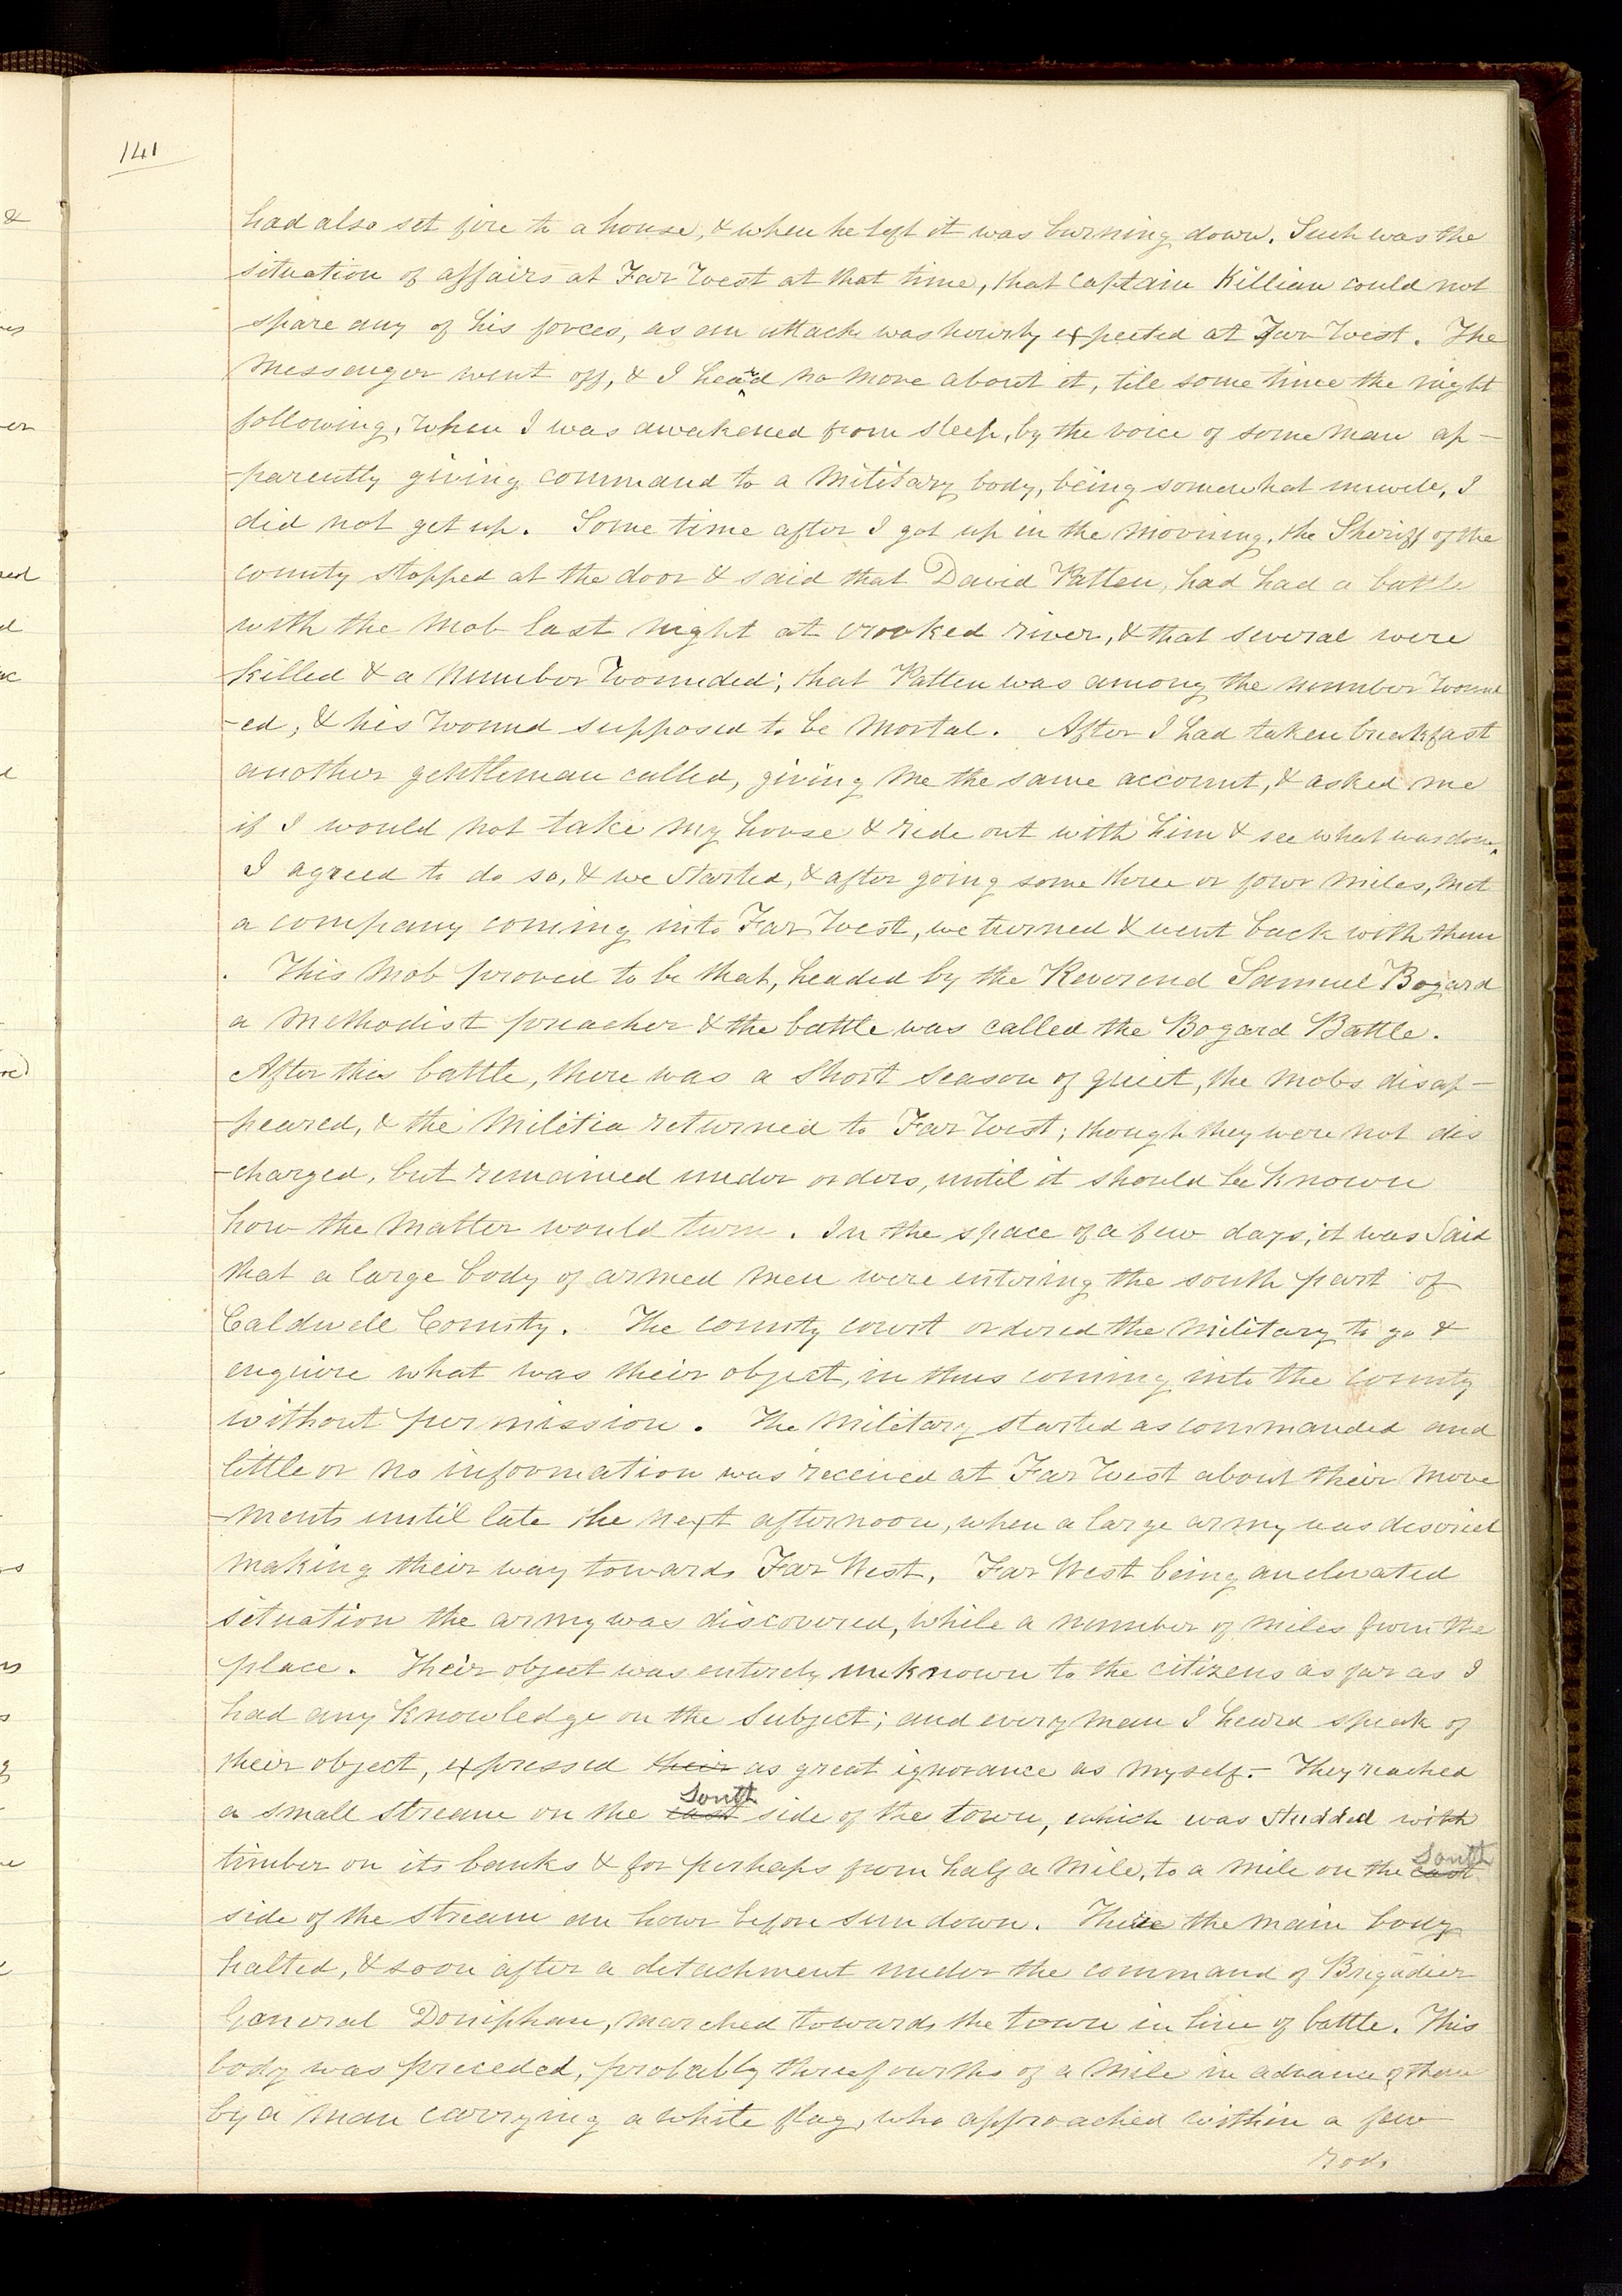 141
had also set fire to a house, & when he left it was burning down. Such was the
situation of affairs at Far West at that time, that Captain Killian could not
spare any of his forces, as an attack was hourly expected at Far West. The
Messenger went off, & I heard no more about it, till some time the night
following, when I was awakened from sleep, by the voice of some man ap-
-parently giving command to a Military body, being somewhat unwell, I
did not get up. Some time after I got up in the morning, the Sheriff of the
county stopped at the door & said that David Patten, had had a battle
with the Mob last night at crooked river, & that several were
killed & a number Wounded; that Patten was among the number Wound
-ed, & his Wound supposed to be Mortal. After I had taken breakfast
another gentleman called, giving me the same account, & asked me
if I would not take my horse & ride out with him & see what was done,
I agreed to do so, & we started, & after going some three or four miles, met
a company coming into Far West, we turned & went back with them
. This Mob proved to be that, headed by the Reverend Samuel Bogard
a Methodist preacher & the battle was called the Bogard Battle.
After this battle, there was a short season of quiet, the Mobs disap-
-peared, & the Militia returned to Far West; though they were not dis
-charged, but remained under orders, until it should be known
how the Matter would turn. In the space of a few days, it was Said
that a large body of armed men were entering the south part of
Caldwell County. The county court ordered the Military to go &
enquire what was their object, in thus coming into the county
without permission. The Military started as commanded and
little or no information was received at Far West about their Move
-ments until late the next afternoon, when a large army was descried
making their way towards Far West. Far West being an elevated
situation the army was discovered, while a number of miles from the
place. Their object was entirely unknown to the citizens as far as I
had any knowledge on the Subject; and every man I heard speak of
their object, expressed their as great ignorance as myself.- They reached
a small stream on the east South side of the town, which was studded with
timber on its banks & for perhaps from half a mile, to a mile on the east South
side of the stream an hour before sun down. There the main body
halted, & soon after a detachment under the command of Brigadier
General Doniphan, marched towards the town in line of battle. This
body was preceded, probably three fourths of a mile in advance of them
by a man carrying a white flag, who approached within a few
rods